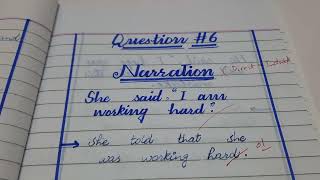 Question #6
Narration
She said: "I am
working hard".
She told that she
was working hard.